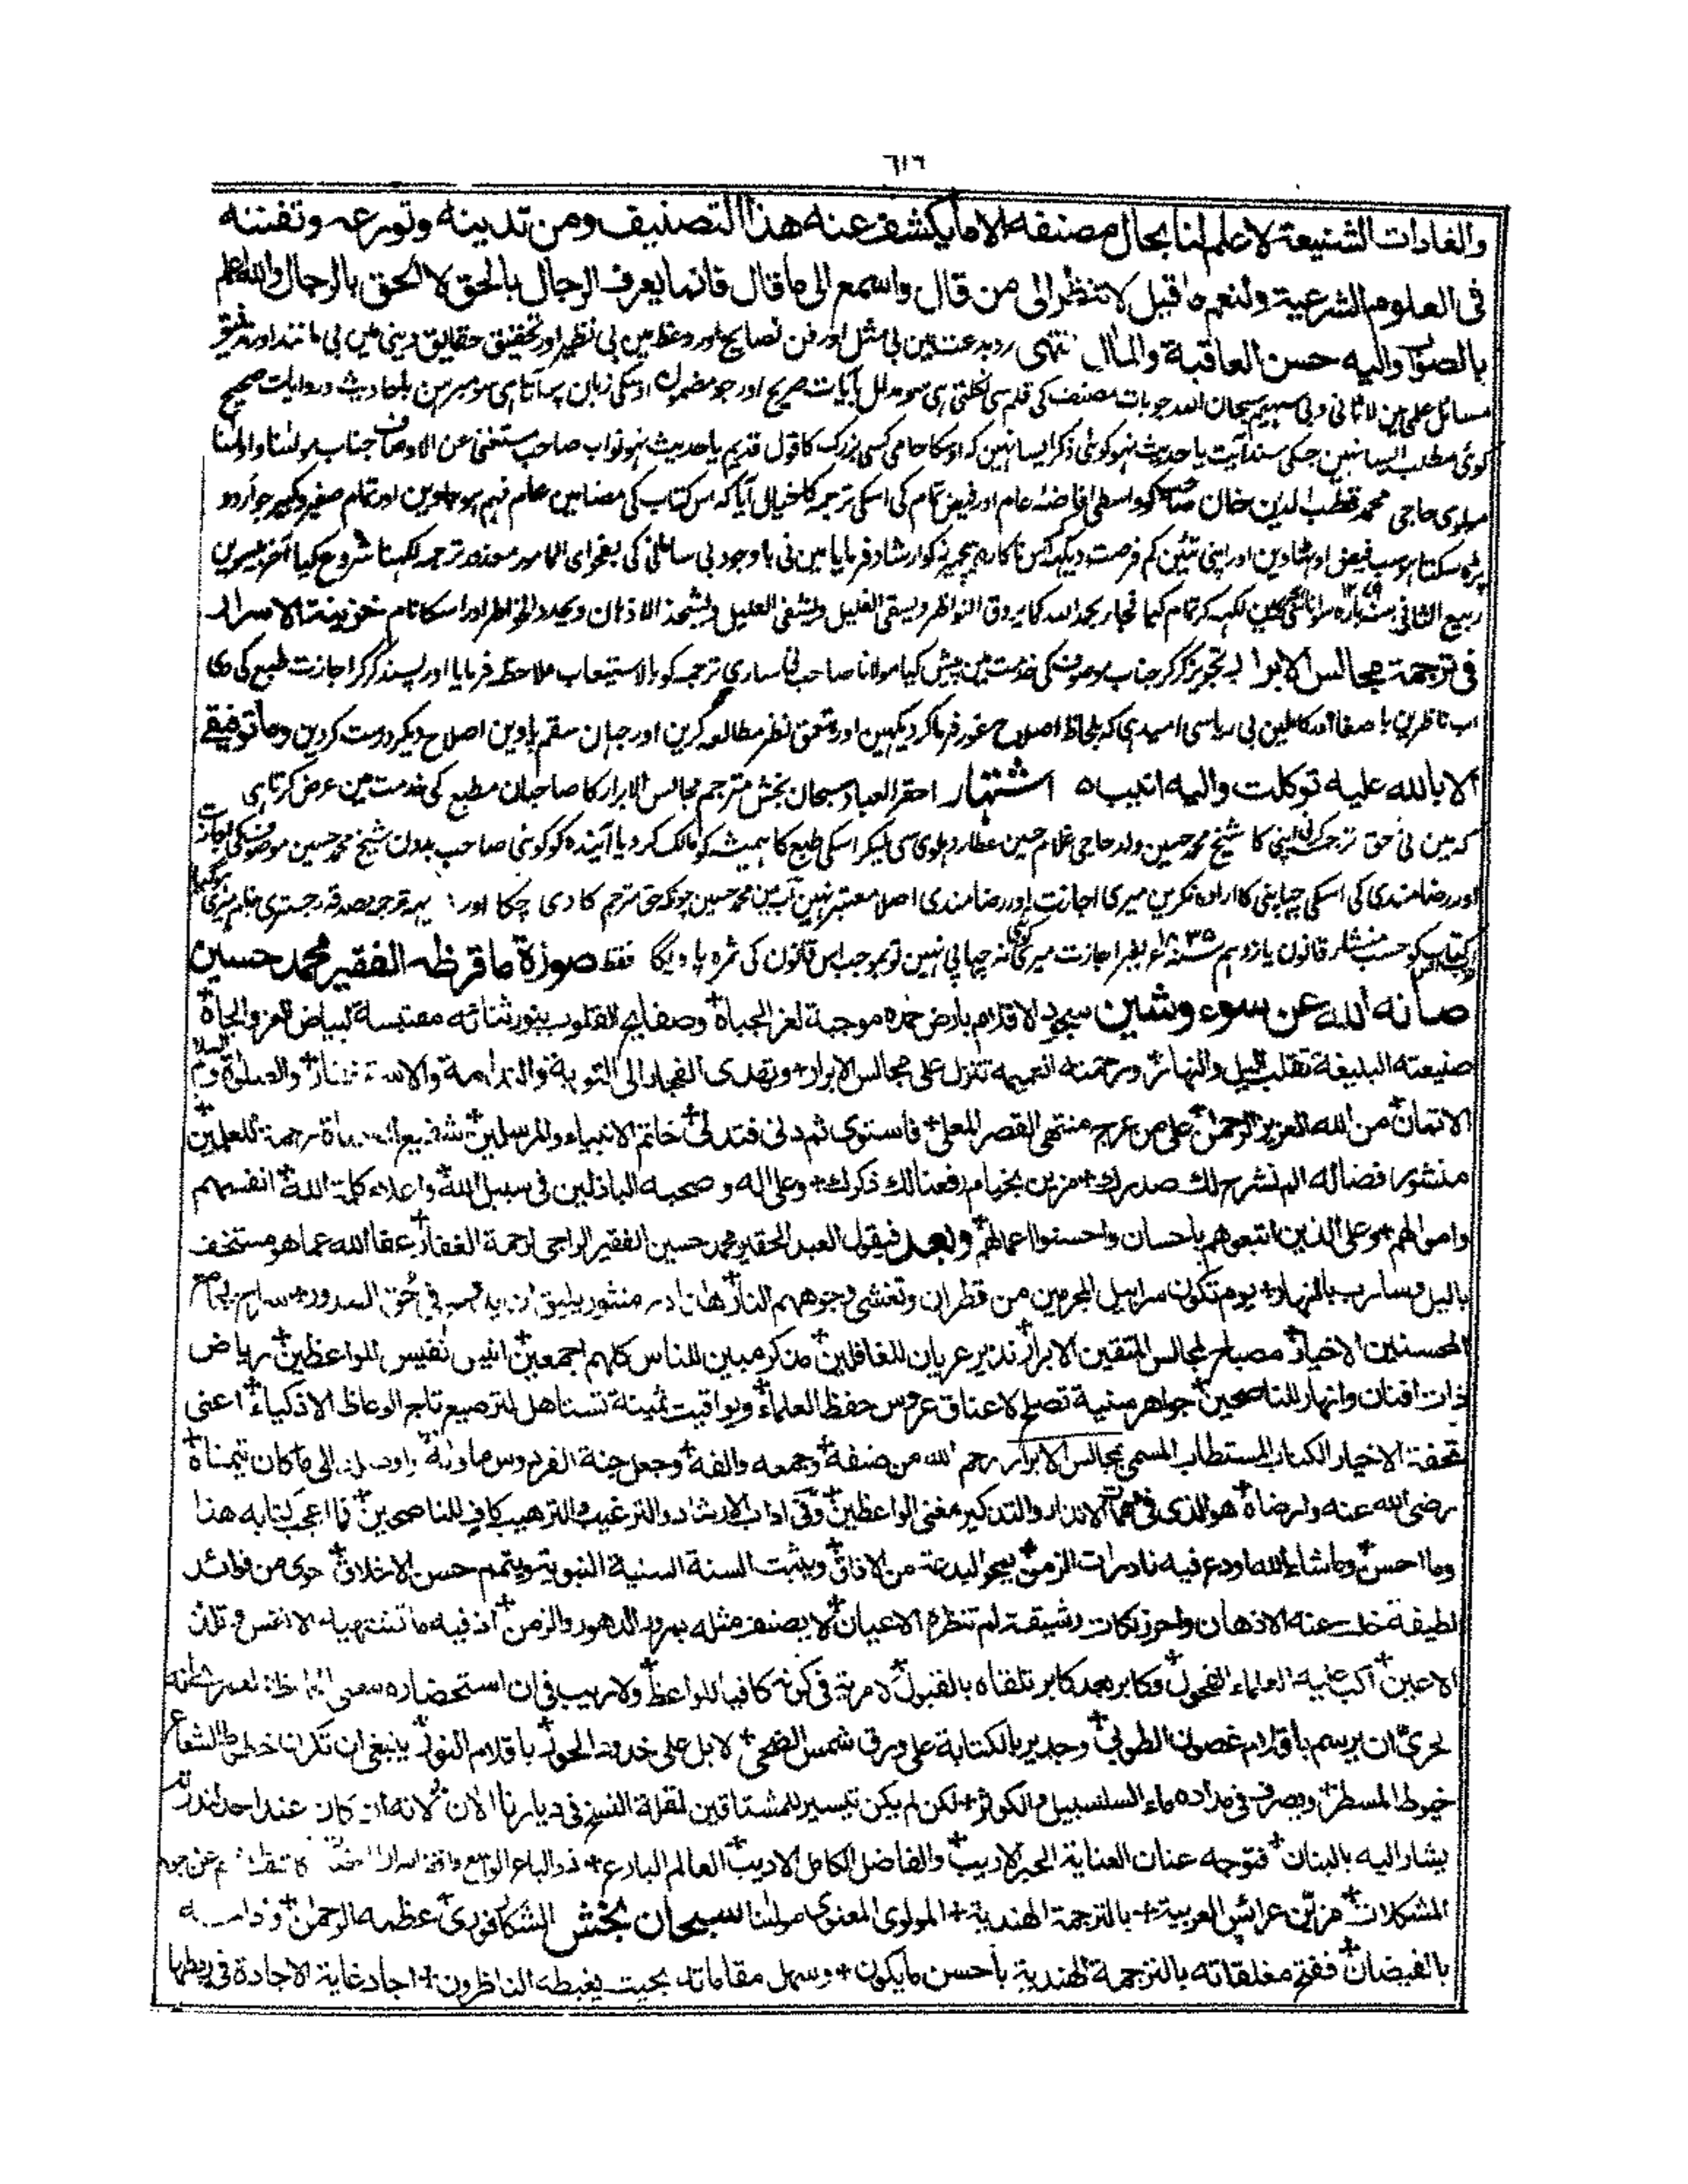 ٦١٦
والعادات الشنيعة لا علم لنا بحال مصنفه الا ما يكشف عنه هذا التصنيف ومن تدينه وتورعه وتفننه
فى العلوم الشرعية ولنعم ما قيل لا تنظر الى من قال واسمع الى ما قال فانما يعرف الرجال بالحق لا الحق بالرجال والله اعلم
بالصواب واليه حسن العاقبة والمآل انتهى رد بدعت مین بی مثل اور فن نصایح اور وعظ مین بی نظیر اور تحقیق حقایق دینی مین بی مانند اور تدقیق
مسائل علمی مین لاثانی و بی سہیم سبحان اللہ جو بات مصنف کی قلم سی نکلتی ہی سو مدلل بآیات صریح اور جو مضمون اوسکی زبان پر آتا ہی سو مبرہن باحادیث و روایات صحیح
کوئی مطلب ایسا نہین جسکی سند آیت یا حدیث نہو کوئی ذکر ایسا نہین کہ اوسکا حامی کسی بزرگ کا قول قدیم یا حدیث نہو نواب صاحب مستغنی عن الاوصاف جناب مولنا واولنا
مولوی حاجی محمد قطب الدین خان صاحب کو واسطی افاضۂ عام اور فیض تمام کی اسکی ترجمہ کا خیال آیا کہ اس کتاب کی مضامین عام فہم ہو جاوین اور تمام صغیر و کبیر جو اردو
پڑہ سکتا ہو سب فیض اوٹھاوین اور اپنی تئین کم فرصت دیکہکر اس ناکارہ ہیچمیرز کو ارشاد فرمایا مین نی باوجود بی سامانی کی بفحوای المامور معذور ترجمہ لکہنا شروع کیا آخر بیسوین
ربیع الثانی سنہ بارہ سو مین لکہہ کر تمام کیا فجاء بحمد اللہ كما يروق النواظر ويسقى الغليل ويشفى العليل ويشحذ الاذهان ويجدد الخواطر اور اسکا نام خزينة الاسرار
فى ترجمة مجالس الابرار تجویز کر کر جناب موصوف کی خدمت مین پیش کیا مولانا صاحب نی ساری ترجمہ کو بالاستیعاب ملاحظہ فرمایا اور پسند کر کر اجازت طبع کی دی
اب ناظرین باصفا اور کاملین بی ریا سی امید ہی کہ بلحاظ اصلاح غور فرما کر دیکہین اور بتعمق نظر مطالعہ کرین اور جہان سقم پاوین اصلاح دیکر درست کر دین وما توفيقى
الا بالله عليه توكلت واليه انيب ہ اشتہار احقر العباد سبحان بخش مترجم مجالس الابرار کا صاحبان مطبع کی خدمت مین عرض کرتا ہی
کہ مین نی حق ترجمہ کرنی اپنی کا شیخ محمد حسین ولد حاجی غلام حسین عطار دہلوی سی لیکر اسکی طبع کا ہمیشہ کو مالک کر دیا آیندہ کو کوئی صاحب بدون شیخ محمد حسین موصوف کی اجازت
اور رضامندی کی اسکی چہاپنی کا ارادہ نکرین میری اجازت اور رضامندی اصلا معتبر نہین اب مین محمد حسین چونکہ حق مترجم کا دی چکا اور یہہ ترجمہ مصدقہ رجستری بنام میری ہو گیا
کتاب کو حسب منشاء قانون یازدہم ۱۸۳۵ء بغیر اجازت میری کوئی نہ چہاپی نہین تو بموجب اس قانون کی ثمرہ پاویگا فقط صورة ما قرظه الفقير محمد حسين
صانه الله عن سوء وشين سجود الاقلام بارض حمده موجبة لعز الجباه وصفايح القلوب بنور ثنائه مقتبسة لبياض العز والجاه
صنيعته البليغة تقلب الليل والنهار ورحمته العميمة تنزل على مجالس الابرار وتهدى الفجار الى التوبة والندامة والاستغفار والصلوة والسلام
الاتمان من الله العزيز الرحمن على من عرج منتهى القصر المعلى فاستوى ثم دنى فتدلى خاتم الانبياء والمرسلين شفيع رحمة للعلمين
منثور فضاله الم نشرح لك صدرك مزين بخيام ورفعنا لك ذكرك وعلى اله وصحبه الباذلين فى سبيل الله واعلاء كلمة الله انفسهم
واموالهم وعلى الذين اتبعوهم باحسان واحسنوا اعمالهم وبعد فيقول العبد الحقير محمد حسين الفقير الراجى لرحمة الغفار عفا الله عما هو مستخف
بالليل وسارب بالنهار يوم تكون سرابيل المجرمين من قطران وتغشى وجوههم النار هان در منثور يليق ان فى حق الصدور
المحسنين الاخيار مصباح لمجالس المتقين الابرار نذير عريان للغافلين مذكر مبين للناس كلهم اجمعين انيس نفيس للواعظين رياض
ذات افنان وانهار للناصحين جواهر منيّة تصلح لاعناق عروس حفظ العلماء ويواقيت ثمينة تستاهل لترصيع تاج الوعاظ الاذكياء اعنى
تحفة الاخيار الكتاب المستطاب المسمى بمجالس الابرار رحم الله من صنفه وجمعه والفه وجعل جنة الفردوس ماواه الى ما كان يتمناه
رضى الله عنه وارضاه هو الذى فى الانذار والتذكير مغنى الواعظين وفى اداب الارشاد والترغيب والترهيب كاف للناصحين فما اعجب كتابه هذا
وما احسن وما شاء الله اودع فيه نادرات الزمن يمحو البدعة من الافاق ويثبت السنة السنية النبوية ويتمم حسن الاخلاق حوى من فوائد
لطيفة خلت عنه الاذهان واحرز نكات رشيقة لم تنظره الاعيان لا يصنف مثله بمرور الدهور والزمن اذ فيه ما تشتهيه الانفس وتلذ
الاعين اكب عليه العلماء الفحول وكابر بعد كابر تلقاه بالقبول لا مرية فى كونه كافيا للواعظ ولا ريب فى ان استحضاره
لحرىّ ان يرسم باقلام غصون الطوبى وجدير بالكتابة على ورق شمس الضحى لا بل على خدود الحور باقلام النور ينبغى ان تكون خطوط الشعاع
خيوط المسطر ويصرف فى مداده ماء السلسبيل والكوثر لكن لم يكن تيسير للمشتاقين لقلة النسخ فى ديارنا الان لانه ان كان عند احد
يشار اليه بالبنان فتوجه عنان العناية الحبر الاريب والفاضل الكامل الاديب العالم البارع ذو الباع الواسع
المشكلات مزيّن عرائس العربية بالترجمة الهندية المولوى المعنوى مولنا سبحان بخش الشكافورى عظمه الرحمن
بالفيضان ففتح مغلقاته بالترجمة الهندية باحسن ما يكون وسهل مقاماته بحيث يغبطه الناظرون اجاد غاية الاجادة فى